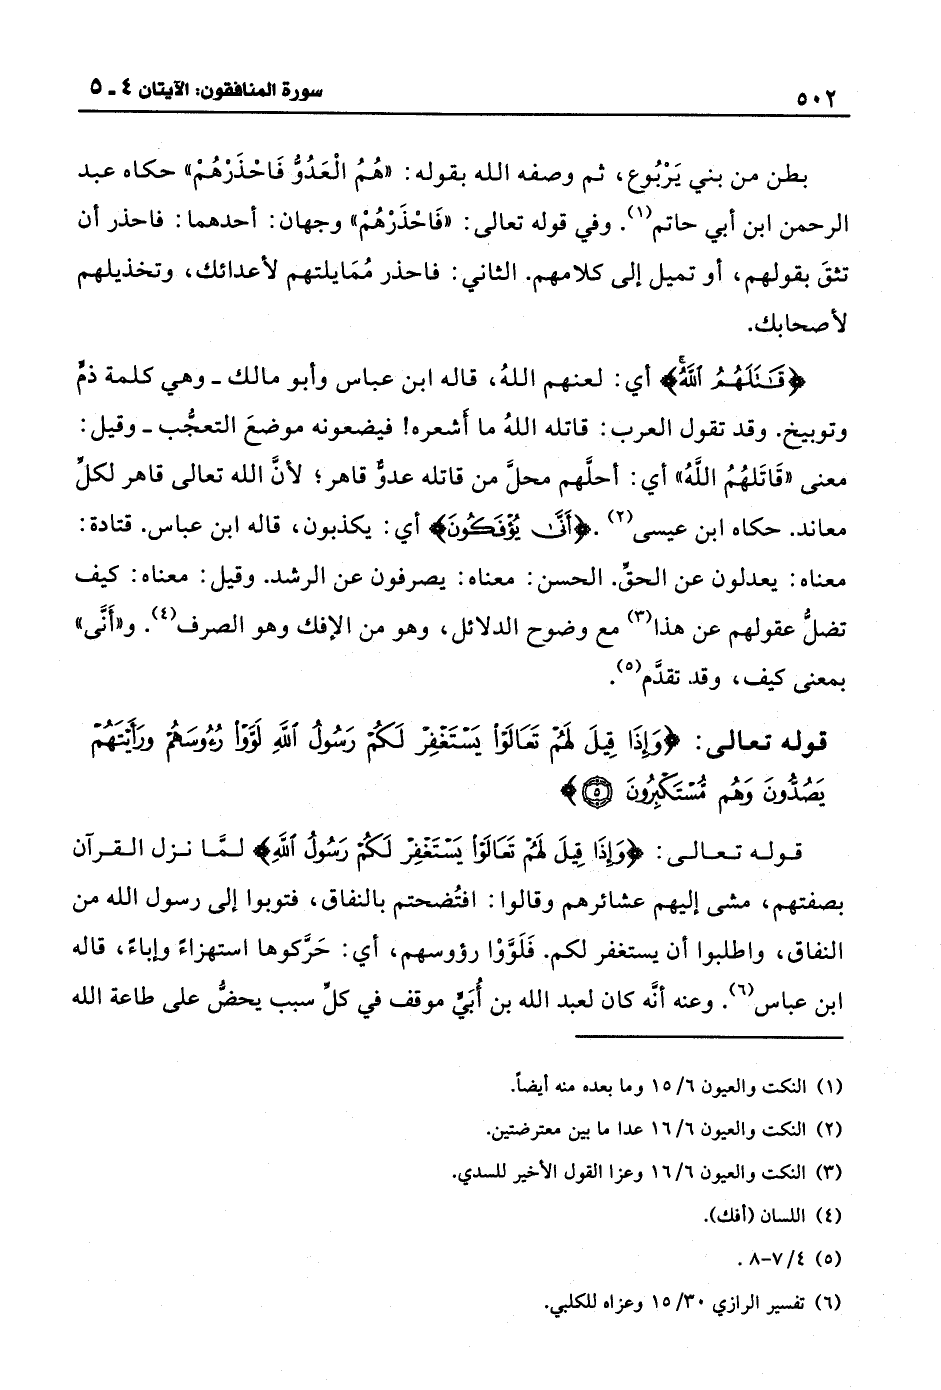 ٥٠٢ سورة المنافقون: الآيتان ٤ ـ ٥
بطن من بني يَرْبُوع، ثم وصفه الله بقوله: «هُمُ الْعَدُوُّ فَاحْذَرْهُمْ» حكاه عبد
الرحمن ابن أبي حاتم(١). وفي قوله تعالى: «فَاحْذَرْهُمْ» وجهان: أحدهما: فاحذر أن
تثقَ بقولهم، أو تميل إلى كلامهم. الثاني: فاحذر مُمَايلتهم لأعدائك، وتخذيلهم
لأصحابك.
﴿قَـٰتَلَهُمُ ٱللَّهُۖ﴾ أي: لعنهم اللهُ، قاله ابن عباس وأبو مالك ـ وهي كلمة ذمٍّ
وتوبيخ. وقد تقول العرب: قاتله اللهُ ما أَشعره! فيضعونه موضعَ التعجُّب ـ وقيل:
معنى «قَاتَلهُمُ اللَّهُ» أي: أحلَّهم محلَّ من قاتله عدوٌّ قاهر؛ لأنَّ الله تعالى قاهر لكلِّ
معاند. حكاه ابن عيسى(٢). ﴿أَنَّىٰ يُؤْفَكُونَ﴾ أي: يكذبون، قاله ابن عباس. قتادة:
معناه: يعدلون عن الحقِّ. الحسن: معناه: يصرفون عن الرشد. وقيل: معناه: كيف
تضلُّ عقولهم عن هذا(٣) مع وضوح الدلائل، وهو من الإفك وهو الصرف(٤). و«أَنَّى»
بمعنى كيف، وقد تقدَّم(٥).
قوله تعالى: ﴿وَإِذَا قِيلَ لَهُمْ تَعَالَوْا۟ يَسْتَغْفِرْ لَكُمْ رَسُولُ ٱللَّهِ لَوَّوْا۟ رُءُوسَهُمْ وَرَأَيْتَهُمْ
يَصُدُّونَ وَهُم مُّسْتَكْبِرُونَ ٥﴾
قوله تعالى: ﴿وَإِذَا قِيلَ لَهُمْ تَعَالَوْا۟ يَسْتَغْفِرْ لَكُمْ رَسُولُ ٱللَّهِ﴾ لمَّا نزل القرآن
بصفتهم، مشى إليهم عشائرهم وقالوا: افتُضحتم بالنفاق، فتوبوا إلى رسول الله من
النفاق، واطلبوا أن يستغفر لكم. فَلَوَّوْا رؤوسهم، أي: حَرَّكوها استهزاءً وإباءً، قاله
ابن عباس(٦). وعنه أنَّه كان لعبد الله بن أُبَيٍّ موقف في كلِّ سبب يحضُّ على طاعة الله
(١) النكت والعيون ٦/ ١٥ وما بعده منه أيضاً.
(٢) النكت والعيون ٦/ ١٦ عدا ما بين معترضتين.
(٣) النكت والعيون ٦/ ١٦ وعزا القول الأخير للسدي.
(٤) اللسان (أفك).
(٥) ٤/ ٧-٨ .
(٦) تفسير الرازي ٣٠/ ١٥ وعزاه للكلبي.